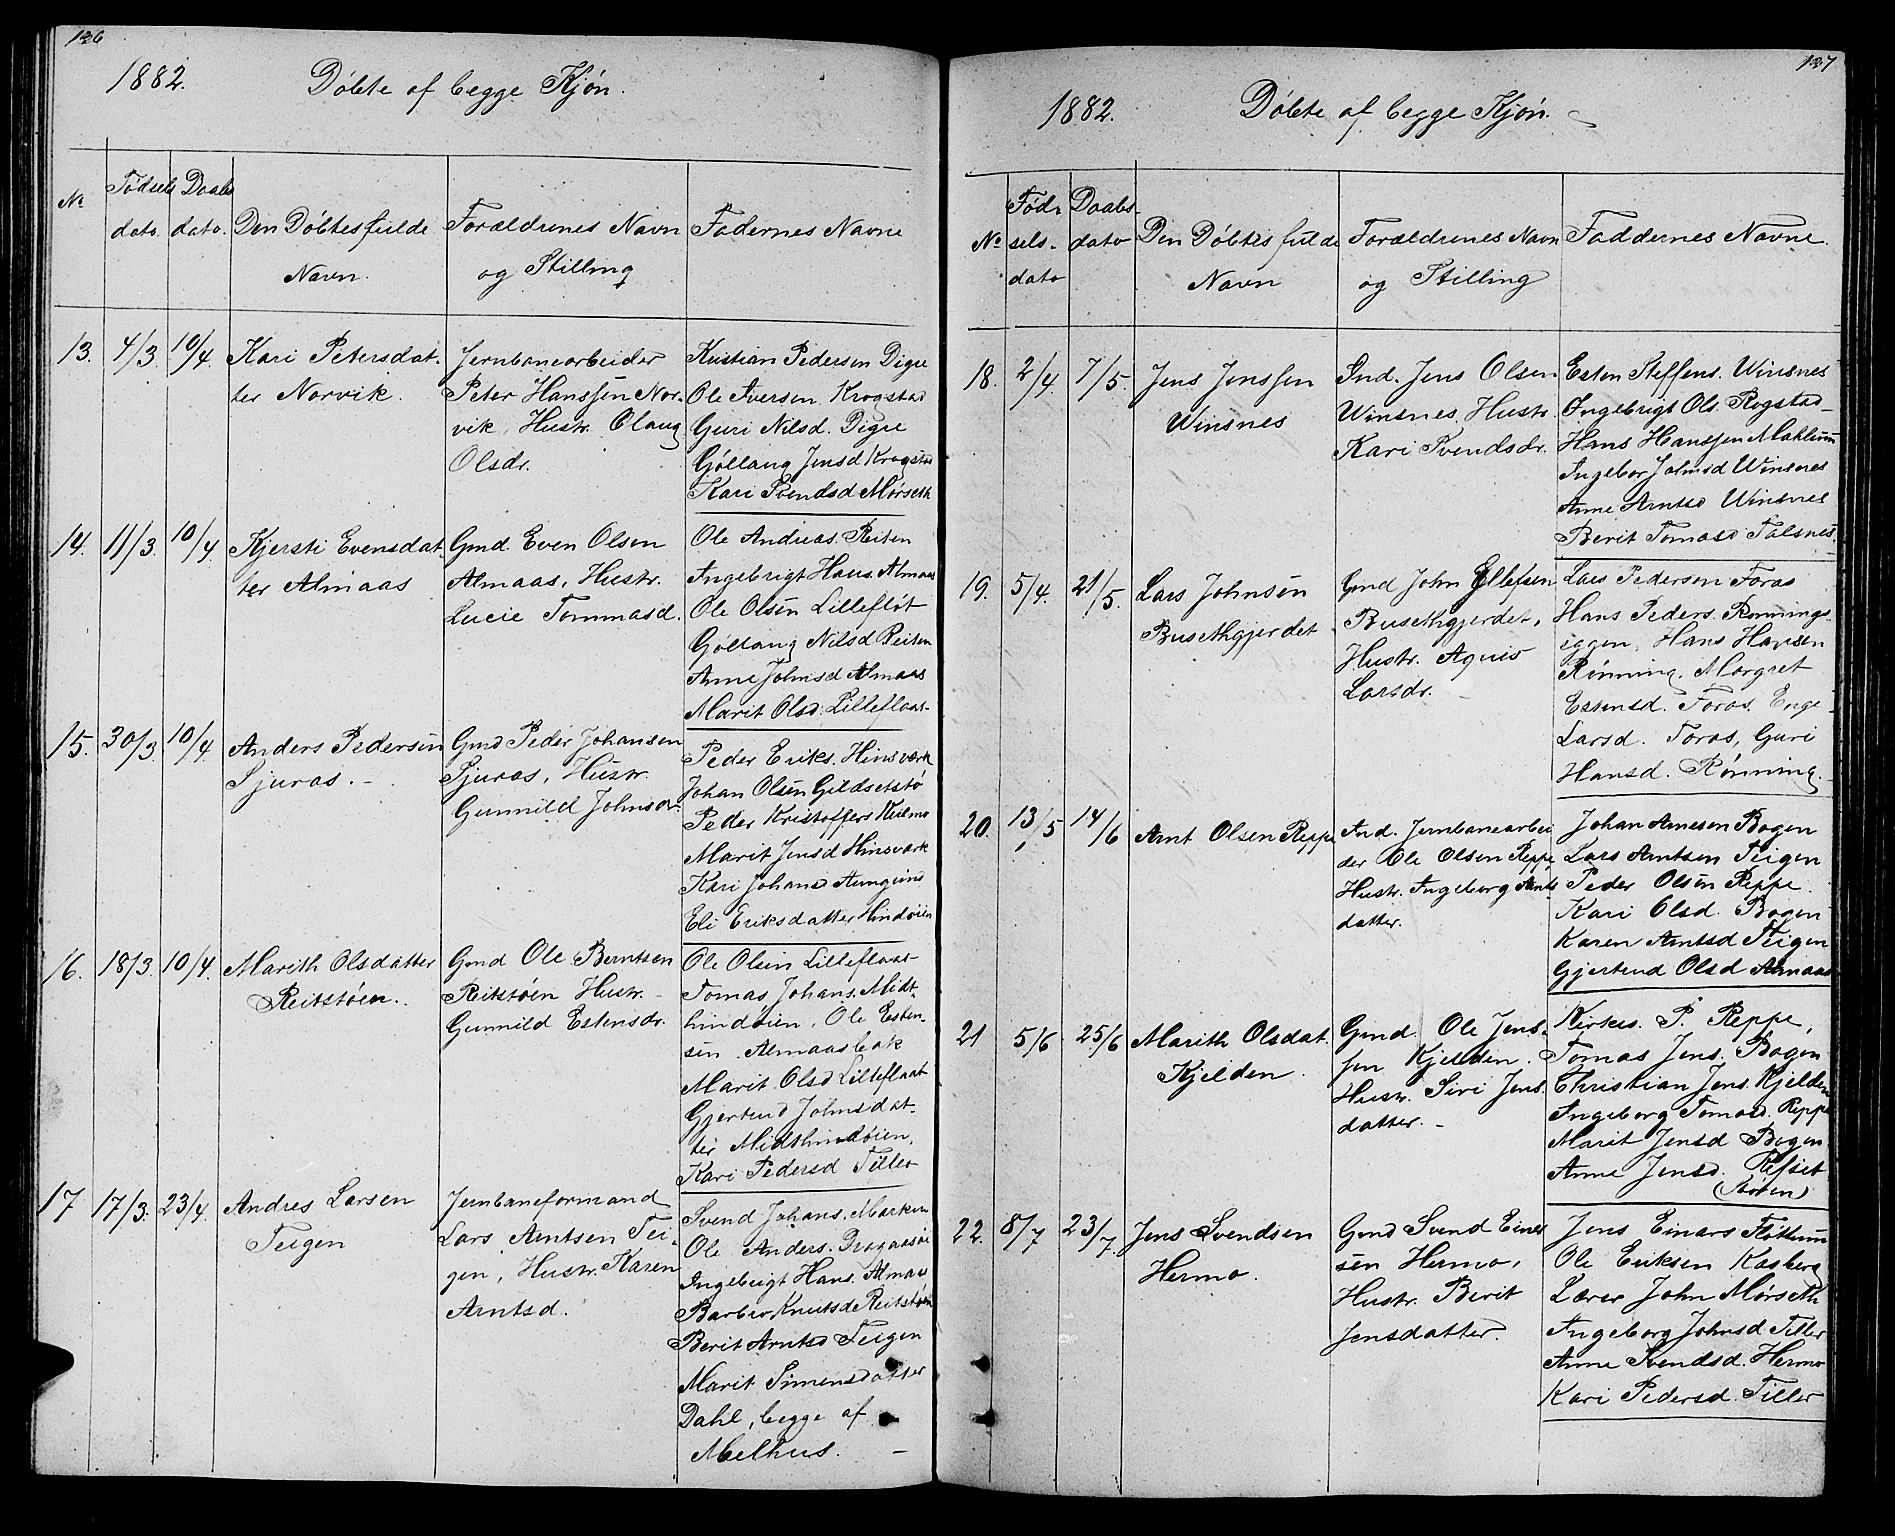 136
1882. Döbte af begge Kjön.
No
Födsels
dato.
Daabs
dato.
Den Döbtes fulde
Navn.
Forældrenes Navn
og Stilling
Fadernes Navne
13. 4/3. 10/4.
Kari Petersdat-
ter Norvik.
Jernbanearbeider
Peter Hanssen Nor-
vik, Hustr. Olaug
Olsdr.
Kristian Pedersen Digre
Ole Iversen Krogstad
Guri Nilsd. Digre
Göllaug Jensd Krogstad
Kari Svendsd Mörseth
14. 11/3. 10/4
Kjersti Evensdat-
ter Almaas
Gmd. Even Olsen
Almaas, Hustr.
Lucie Tommasd.
Ole Andreas. Reiten
Ingebrigt Hans. Almaas
Ole Olsen Lilleflöt
Göllaug Nilsd Reiten
Anne Johnsd Almaas
Marit Olsd. Lilleflaat
15. 30/3. 10/4
Anders Pedersen
Sjuras.-
Gmd Peder Johansen
Sjuras, Hustr.
Gunnild Johnsdr.
Peder Eriks. Hinsværk
Johan Olsen Gildsetstö
Peder Kristoffers Kulmo
Marit Jensd Hinsværk
Kari Johansd Aunegrind
Eli Eriksdatter Hindöien
16. 18/3. 10/4.
Marith Olsdatter
Reitstöen.
Gmd Ole Berntsen
Reitstöen Hustr.
Gunnild Estensdr.
Ole Olsen Lilleflaat
Tomas Johans. Midt-
hindöien, Ole Esten-
sen Almaasbak
Marit Olsd Lilleflaat
Gjertrud Johnsdat-
ter Midthindöien,
Kari Pedersd Tiller
17 17/3. 23/4.
Andres Larsen
Teigen
Jernbaneformand
Lars Arntsen Tei-
gen, Hustr. Karen
Arntsd.
Svend Johans. Marken
Ole Anders.
Ingebrigt Hans. Almaas
Barbro Knutsd Reitstöen
Berit Arntsd Teigen
Marit Simensdatter
Dahl, begge af
Melhus.
137
1882. Döbte af begge Kjön.
No
Föd-
sels-
dato
Daabs-
dato
Den Döbtes fulde
Navn
Forældrenes Navn
og Stilling
Faddernes Navne.
18. 2/4. 7/5.
Jens Jenssen
Winsnes
Ind. Jens Olsen
Winsnes. Hustr.
Kari Svendsdr.
Esten Steffens. Winsnes
Ingebrigt Ols. Rogstad
Hans Hanssen Mahlum
Ingebor Johnsd Winsnes
Anne Arntsd Winsnes
Berit Tomasd Talsnes.
19. 5/4. 21/5.
Lars Johnsen
Busethgjerdet
Gmd John Ellefsen
Busethgjerdet,
Hustr. Agnis
Larsdr.
Lars Pedersen Foras
Hans Peders. Rönnings-
iggen, Hans Hansen
Rönning, Margret
Estensd. Foras, Enge
Larsd. Foras, Guri
Hansd. Rönning.
20. 13/5 14/6
Arnt Olsen Reppe
Ind. Jernbanearbei
der Ole Olsen Reppe
Hustr. Ingeborg Arnts
datter.
Johan Arnesen Bogen
Lars Arntsen Teigen
Peder Olsen Reppe.
Kari Olsd. Bogen
Karen Arntsd Teigen
Gjertrud Olsd Almaas
21 5/6 25/6
Marith Olsdat.
Kjelden.
Gmd. Ole Jens-
sen Kjelden.
Hustr. Siri Jens-
datter.-
Kirkes. P. Reppe,
Tomas Jens. Bogen
Christian Jens. Kjelden
Ingeborg Tomasd. Reppe
Marit Jensd Bogen
Anne Jensd. Refset
(Stöen)
22. 8/7 23/7.
Jens Svendsen
Hermo.
Gmd Svend Einar
sen Hermo,
Hustr. Berit
Jensdatter.
Jens Einars Flöttum
Ole Eriksen Kasberg
Lærer John Mörseth
Ingeborg Johnsd. Tiller
Anne Svendsd. Hermo
Kari Pedersd. Tiller